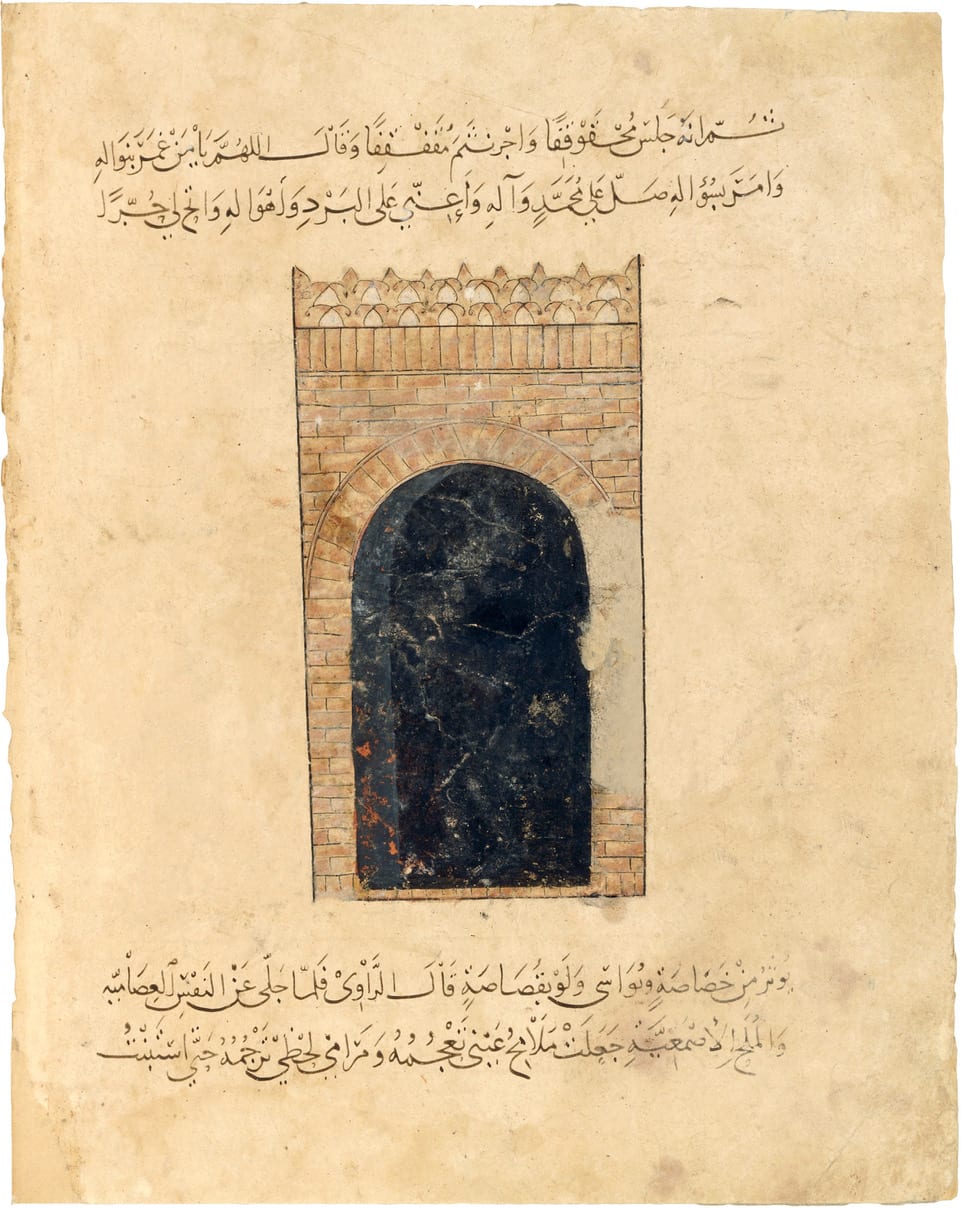 ثُمَّ إنَّهُ جَلَسَ مُحْقَوْقِفًا وَاجْرَنْثَمَ مُقَفْقِفًا وَقَالَ اللهُمَّ يَا مَنْ غَمَرَ بِنَوَالِهِ
وَأَمَرَ بِسُؤَالِهِ صَلِّ عَلَى مُحَمَّدٍ وَآلِهِ وَأَعِنِّي عَلَى البَرْدِ وَأَهْوَالِهِ وَاتِحْ لِي حُرًّا
يُؤْثِرُ مِنْ خَصَاصَةٍ وَيُوَاسِي وَلَوْ بِقُصَاصَةٍ قَالَ الرَّاوِي فَلَمَّا جَلَّى عَنِ النَّفْسِ العِصَامِيَّةِ
وَالمُلَحِ الأَصْمَعِيَّةِ جَعَلَتْ مَلَامِحُ عَيْنِي تَعْجُمُهُ وَمَرَامِي لَحْظِي تَرْجُمُهُ حَتَّى اسْتَبَنْتُ